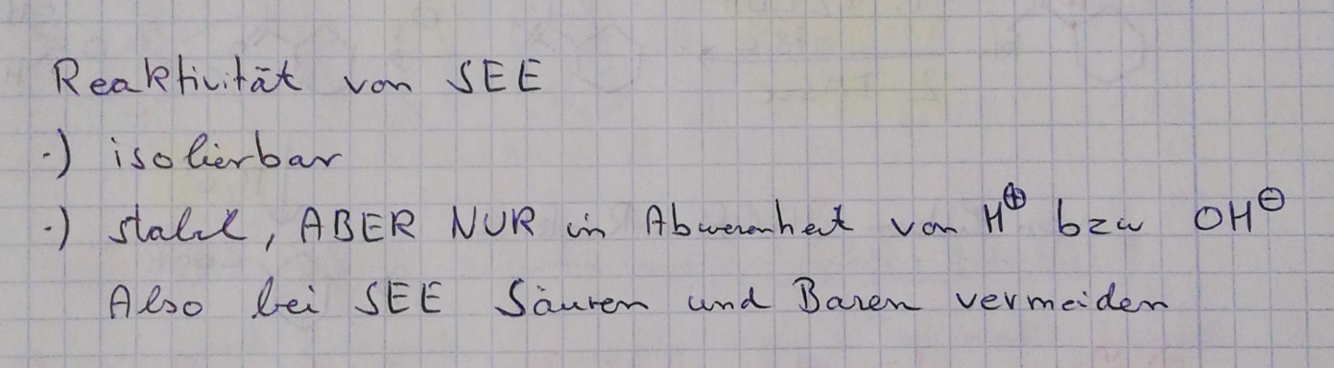 Reaktivität von SEE
·) isolierbar
·) stabil, ABER NUR in Abwesenheit von H⊕ bzw OH⊖
Also bei SEE Säuren und Basen vermeiden